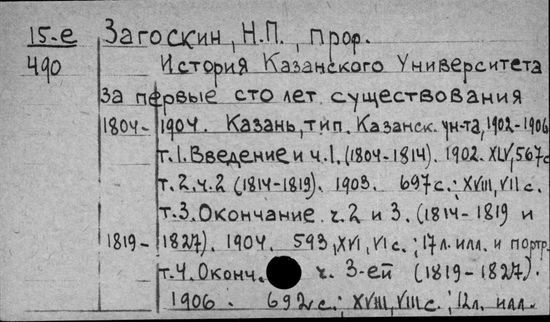 15-е Загоскин, Н.П., проф.
490 История Казанского Университета
за первые сто лет существования
1804-1904. Казань, тип. Казанск. ун-та, 1902-1906
т.1. Введение и ч.1. (1804-1814). 1902. XLV, 567с
т.2. ч.2 (1814-1819). 1903. 697с.; XVIII, VII с.
т.3. Окончание ч.2 и 3. (1814-1819 и
1819-1827). 1904. 593, XVI, VI с.; 17 л. илл. и портр.
т.4. Оконч. ч. 3-ей (1819-1827).
1906. 692 с.; XVIII, VIII с.; 12л. илл.